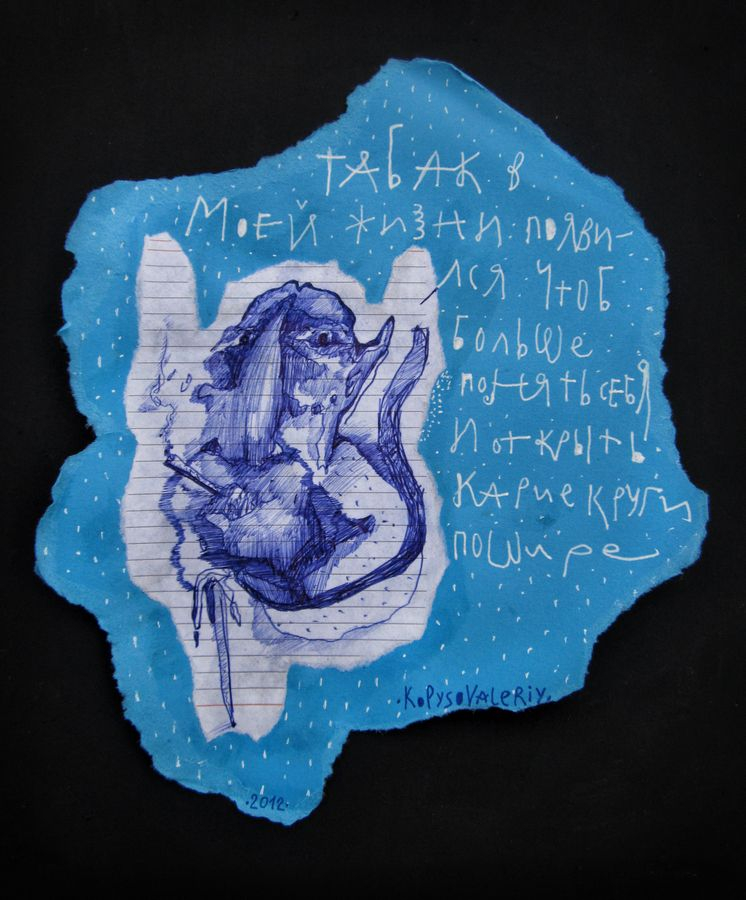 тАБАК в
МОЕЙ жизНИ появи-
лся чтоб
больше
понять себЯ
и открыть
карие круги
пошире
.KoPySoVALeRiY.
.2012.